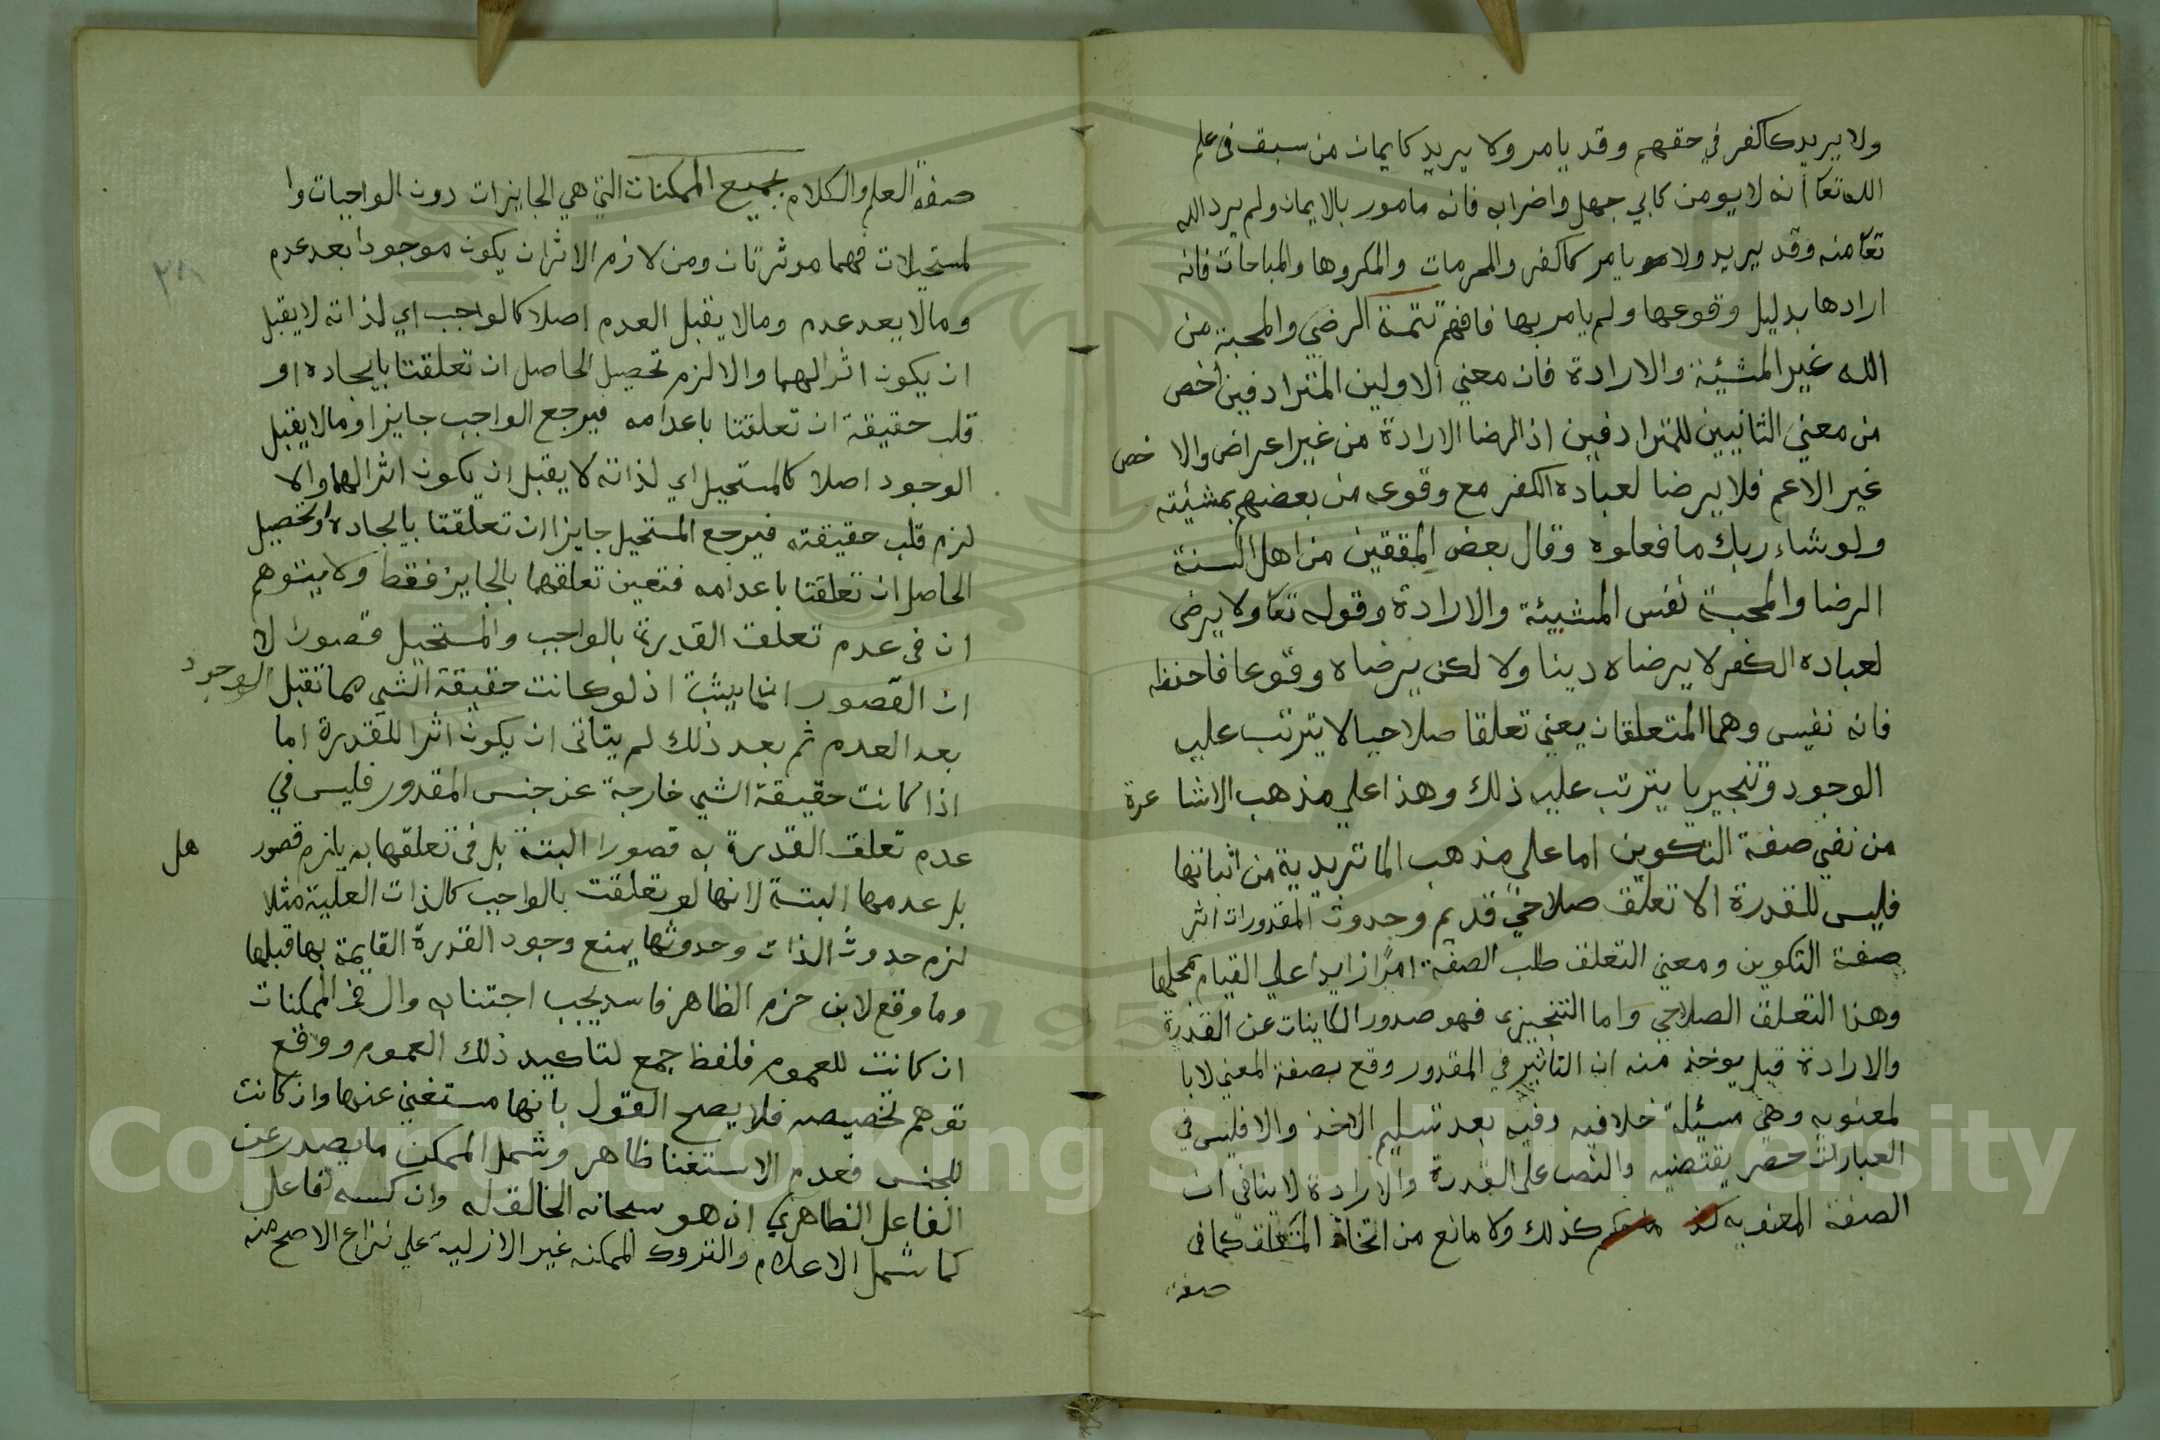 ولا يريد كالكفر في حقهم وقد يامر ولا يريد كايمان من سبق في علم
الله تعا انه لا يومن كابي جهل واضرابه فانه مامور بالايمان ولم يرد الله
تعا منه وقد يريد ولا يامر كالكفر والمحرمات والمكروها والمباحات فانه
ارادها بدليل وقوعها ولم يامر بها فافهم تتمة الرضي والمحبة من
الله غير المشئية والارادة فان معني الاولين المترادفين اخص
من معني الثانيين المترادفين اذ الرضا الارادة من غير اعراض والا خص
غير الاعم فلا يرضا لعباده الكفر مع وقوعه من بعضهم بمشئيته
ولو شاء ربك ما فعلوه وقال بعض المققين من اهل السنة
الرضا والمحبة نفس المشيئة والارادة وقوله تعا ولا يرضى
لعباده الكفر لا يرضاه دينا ولا لكن يرضاه وقوعا فاحفظه
فانه نفيس وهما المتعلقان يعني تعلقا صلاحيا لا يترتب عليه
الوجود وتنجيريا يترتب عليه ذلك وهذا علي مذهب الاشا عرة
من نفي صفة التكوين اما على مذهب الماتريدية من اثباتها
فليس للقدرة الا تعلق صلاحي قديم وحدوث المقدورات اثر
صفة التكوين ومعني التعلق طلب الصفة امرا زايدا علي القيام بمحلها
وهذا التعلق الصلاحي واما التنجيزي فهو صدور الكاينات عن القدرة
والارادة قيل يوخذ منه ان التاثير في المقدور وقع بصفة المعني لا با
لمعنويه وهي مسئلة خلافيه وفيه بعد تسليم الاخذ والا فليس في
العبارات حصر يقتضيه والنص على القدرة والارادة لا ينافي ان
الصفة المعنويه كذلك ولا مانع من اتحاد المتعلق كما في
صفة
٢٨
صفة العلم والكلام بجميع الممكنات التي هي الجايزات دون الواجبات وا
لمستحيلات فهما موثرتان ومن لازم الاثر ان يكون موجودا بعد عدم
ومالا يعد عدم ومالا يقبل العدم اصلا كالواجب اي لذاته لا يقبل
ان يكون اثرا لهما والا لزم تحصيل الحاصل ان تعلقتا بايجاده او
قلب حقيقة ان تعلقتا باعدامه فيرجع الواجب جايزا ومالا يقبل
الوجود اصلا كالمستحيل اي لذاته لا يقبل ان يكون اثرا لهما والا
لزم قلب حقيقته فيرجع المستحيل جايزا ان تعلقتا بايجاده او تحصيل
الحاصل ان تعلقتا باعدامه فتعين تعلقهما بالجايز فقط ولا يتوهم
ان في عدم تعلق القدرة بالواجب والمستحيل قصور لا
ان القصور انما يثبت اذ لو كانت حقيقة الشي مما تقبل الوجود
بعد العدم ثم بعد ذلك لم يتاتى ان يكون اثرا للقدرة اما
اذا كانت حقيقة الشي خارجة عن جنس المقدور فليس في
عدم تعلق القدرة به قصورا البتة بل في تعلقها به يلزم قصور هل
بل عدمها البتة لانها لو تعلقت بالواجب كالذات العلية مثلا
لزم حدوث الذات وحدوثها يمنع وجود القدرة القايمة بها قبلها
وما وقع لابن حزم الظاهر فاسد يجب اجتنابه وال في الممكنات
ان كانت للعموم فلفظ جمع لتاكيد ذلك العموم ووقع
توهم تخصيصه فلا يصح القول بانها مستغني عنها وان كانت
للجنس فعدم الاستغنا ظاهر وشمل الممكن ما يصدر عن
الفاعل الظاهري اذ هو سبحانه الخالق له وان كسبه لفاعل
كما شمل الاعدام والتروك الممكنه غير الازلية علي نزاع الاصح منه